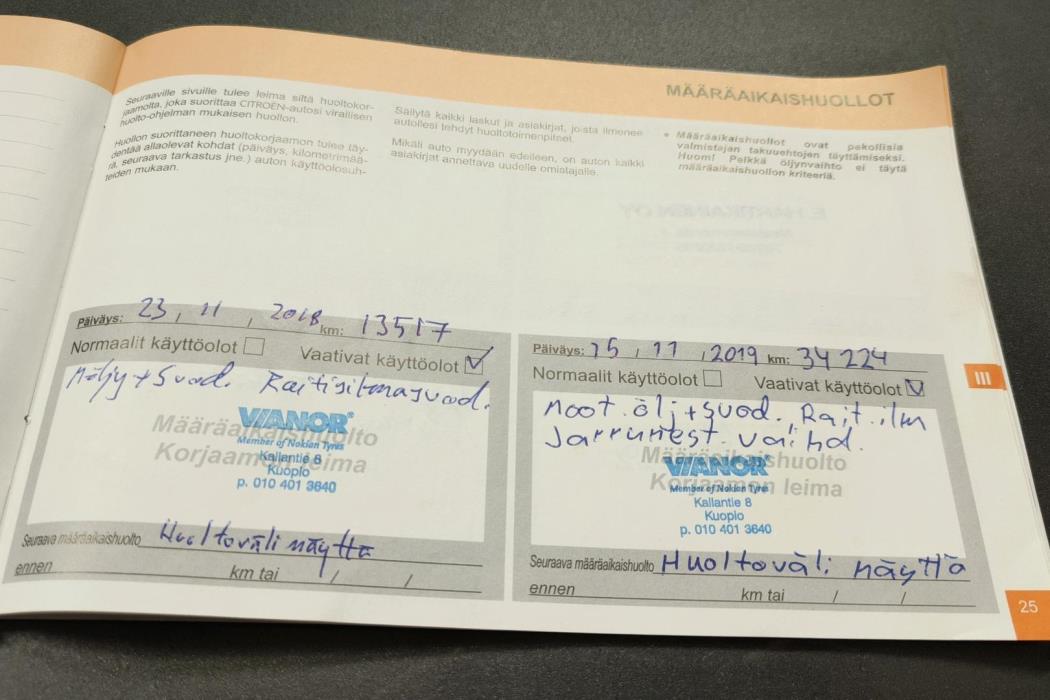 MÄÄRÄAIKAISHUOLLOT
Seuraaville sivuille tulee leima siltä huoltokor-
jaamolta, joka suorittaa CITROËN-autosi virallisen
huolto-ohjelman mukaisen huollon.
Huollon suorittaneen huoltokorjaamon tulee täy-
dentää allaolevat kohdat (päiväys, kilometrimää-
rä, seuraava tarkastus jne.) auton käyttöolosuh-
teiden mukaan.
Säilytä kaikki laskut ja asiakirjat, joista ilmenee
autollesi tehdyt huoltotoimenpiteet.
Mikäli auto myydään edelleen, on auton kaikki
asiakirjat annettava uudelle omistajalle.
• Määräaikaishuollot ovat pakollisia
valmistajan takuuehtojen täyttämiseksi.
Huom! Pelkkä öljynvaihto ei täytä
määräaikaishuollon kriteeriä.
Päiväys: 23 , 11 , 2018 km: 13517
Normaalit käyttöolot Vaativat käyttöolot
Möljy + Suod. Raitisilmasuod.
Määräaikaishuolto
Korjaamon leima
VIANOR
Member of Nokian Tyres
Kallantie 8
Kuopio
p. 010 401 3640
Seuraava määräaikaishuolto Huoltoväli näyttä
ennen km tai / /
Päiväys: 15 , 11 , 2019 km: 34 224
Normaalit käyttöolot Vaativat käyttöolot
moot. ölj + suod. , Rait. ilm
Jarrunest. vaihd.
Määräaikaishuolto
Korjaamon leima
VIANOR
Member of Nokian Tyres
Kallantie 8
Kuopio
p. 010 401 3640
Seuraava määräaikaishuolto Huoltoväli näyttä
ennen km tai / /
III
25